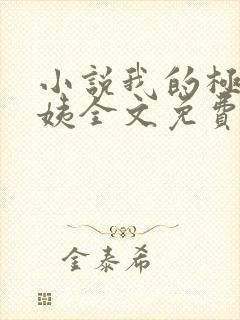 小說我的極
姨全文免費
金泰希